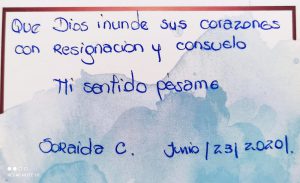 Que Dios inunde sus corazones
con Resignación y consuelo
Mi sentido pésame
Soraida C. Junio/23/2020/.